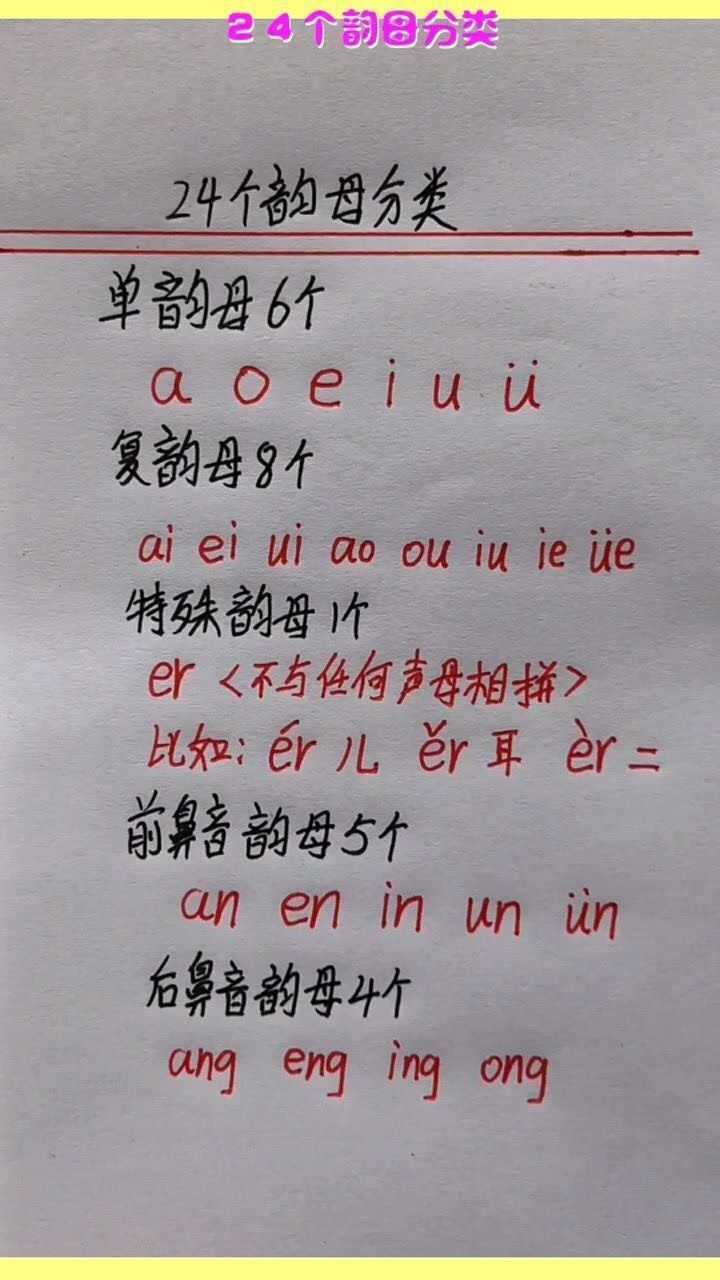 24个韵母分类
24个韵母分类
单韵母6个
a o e i u ü
复韵母8个
ai ei ui ao ou iu ie üe
特殊韵母1个
er <不与任何声母相拼>
比如: ér 儿 ěr 耳 èr 二
前鼻音韵母5个
an en in un ün
后鼻音韵母4个
ang eng ing ong